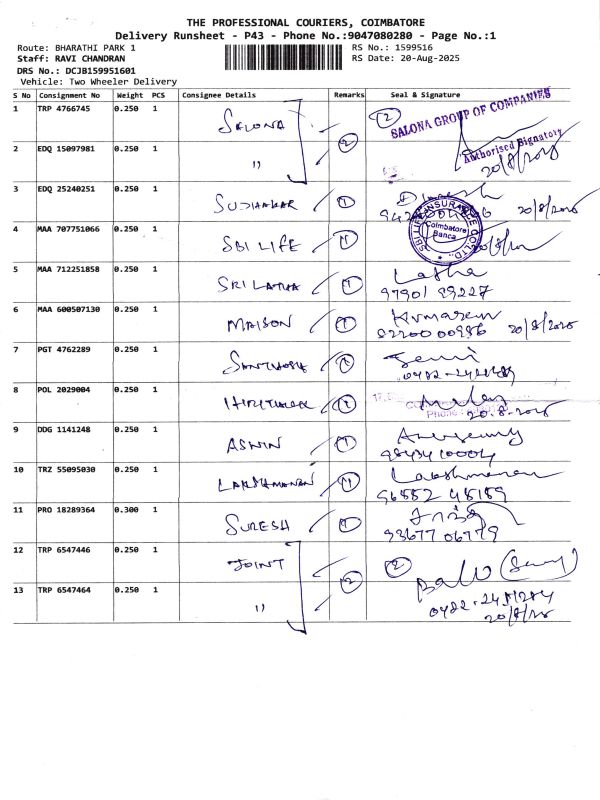 THE PROFESSIONAL COURIERS, COIMBATORE
Delivery Runsheet - P43 - Phone No.:9047080280 - Page No.:1
Route: BHARATHI PARK 1 RS No.: 1599516
Staff: RAVI CHANDRAN RS Date: 20-Aug-2025
DRS No.: DCJB159951601
Vehicle: Two Wheeler Delivery
S No Consignment No Weight PCS Consignee Details Remarks Seal & Signature
1 TRP 4766745 0.250 1 SALONA 2 2 SALONA GROUP OF COMPANIES
Authorised Signatory
2 EDQ 15097981 0.250 1 " 20/8/2025
3 EDQ 25240251 0.250 1 SUDHAKAR 1 Dinesh
20/8/2025
4 MAA 707751066 0.250 1 SBI LIFE 1 SBI LIFE INSURANCE CO LTD. Coimbatore Banca
5 MAA 712251858 0.250 1 SRILATHA 1 Latha
97901 89227
6 MAA 600507130 0.250 1 MAISON 1 Kumaresn
20/8/2025
7 PGT 4762289 0.250 1 SANTHOSH
8 POL 2029004 0.250 1
Phone 20.8.2025
9 DDG 1141248 0.250 1 ASWIN 1
98434 10004
10 TRZ 55095030 0.250 1 LAKSHMANAN 1 Lakshmanan
96552 48189
11 PRO 18289364 0.300 1 SURESH 1
93677 06779
12 TRP 6547446 0.250 1 JOINT 2 2 Balu
13 TRP 6547464 0.250 1 "
20/8/25